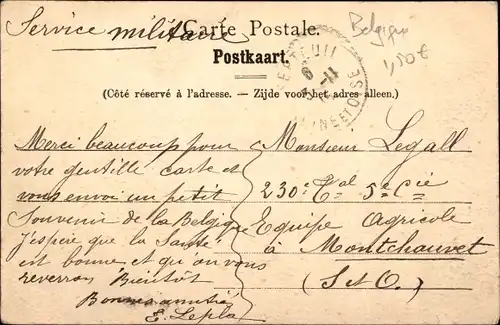 Service militaire
Carte Postale.
Belgique
Postkaart.
1,50€
(Côté réservé à l'adresse. — Zijde voor het adres alleen.)
Merci beaucoup pour
votre gentille carte et
vous envoi un petit
Souvenir de la Belgique
j'espère que la Santé
est bonne et qu'on vous
reverron Bientôt
Bonne amitié
E. Lepla
Monsieur Legall
230e Tal 5e Cie
Equipe Agricole
à Montchauvet
(S et O.)